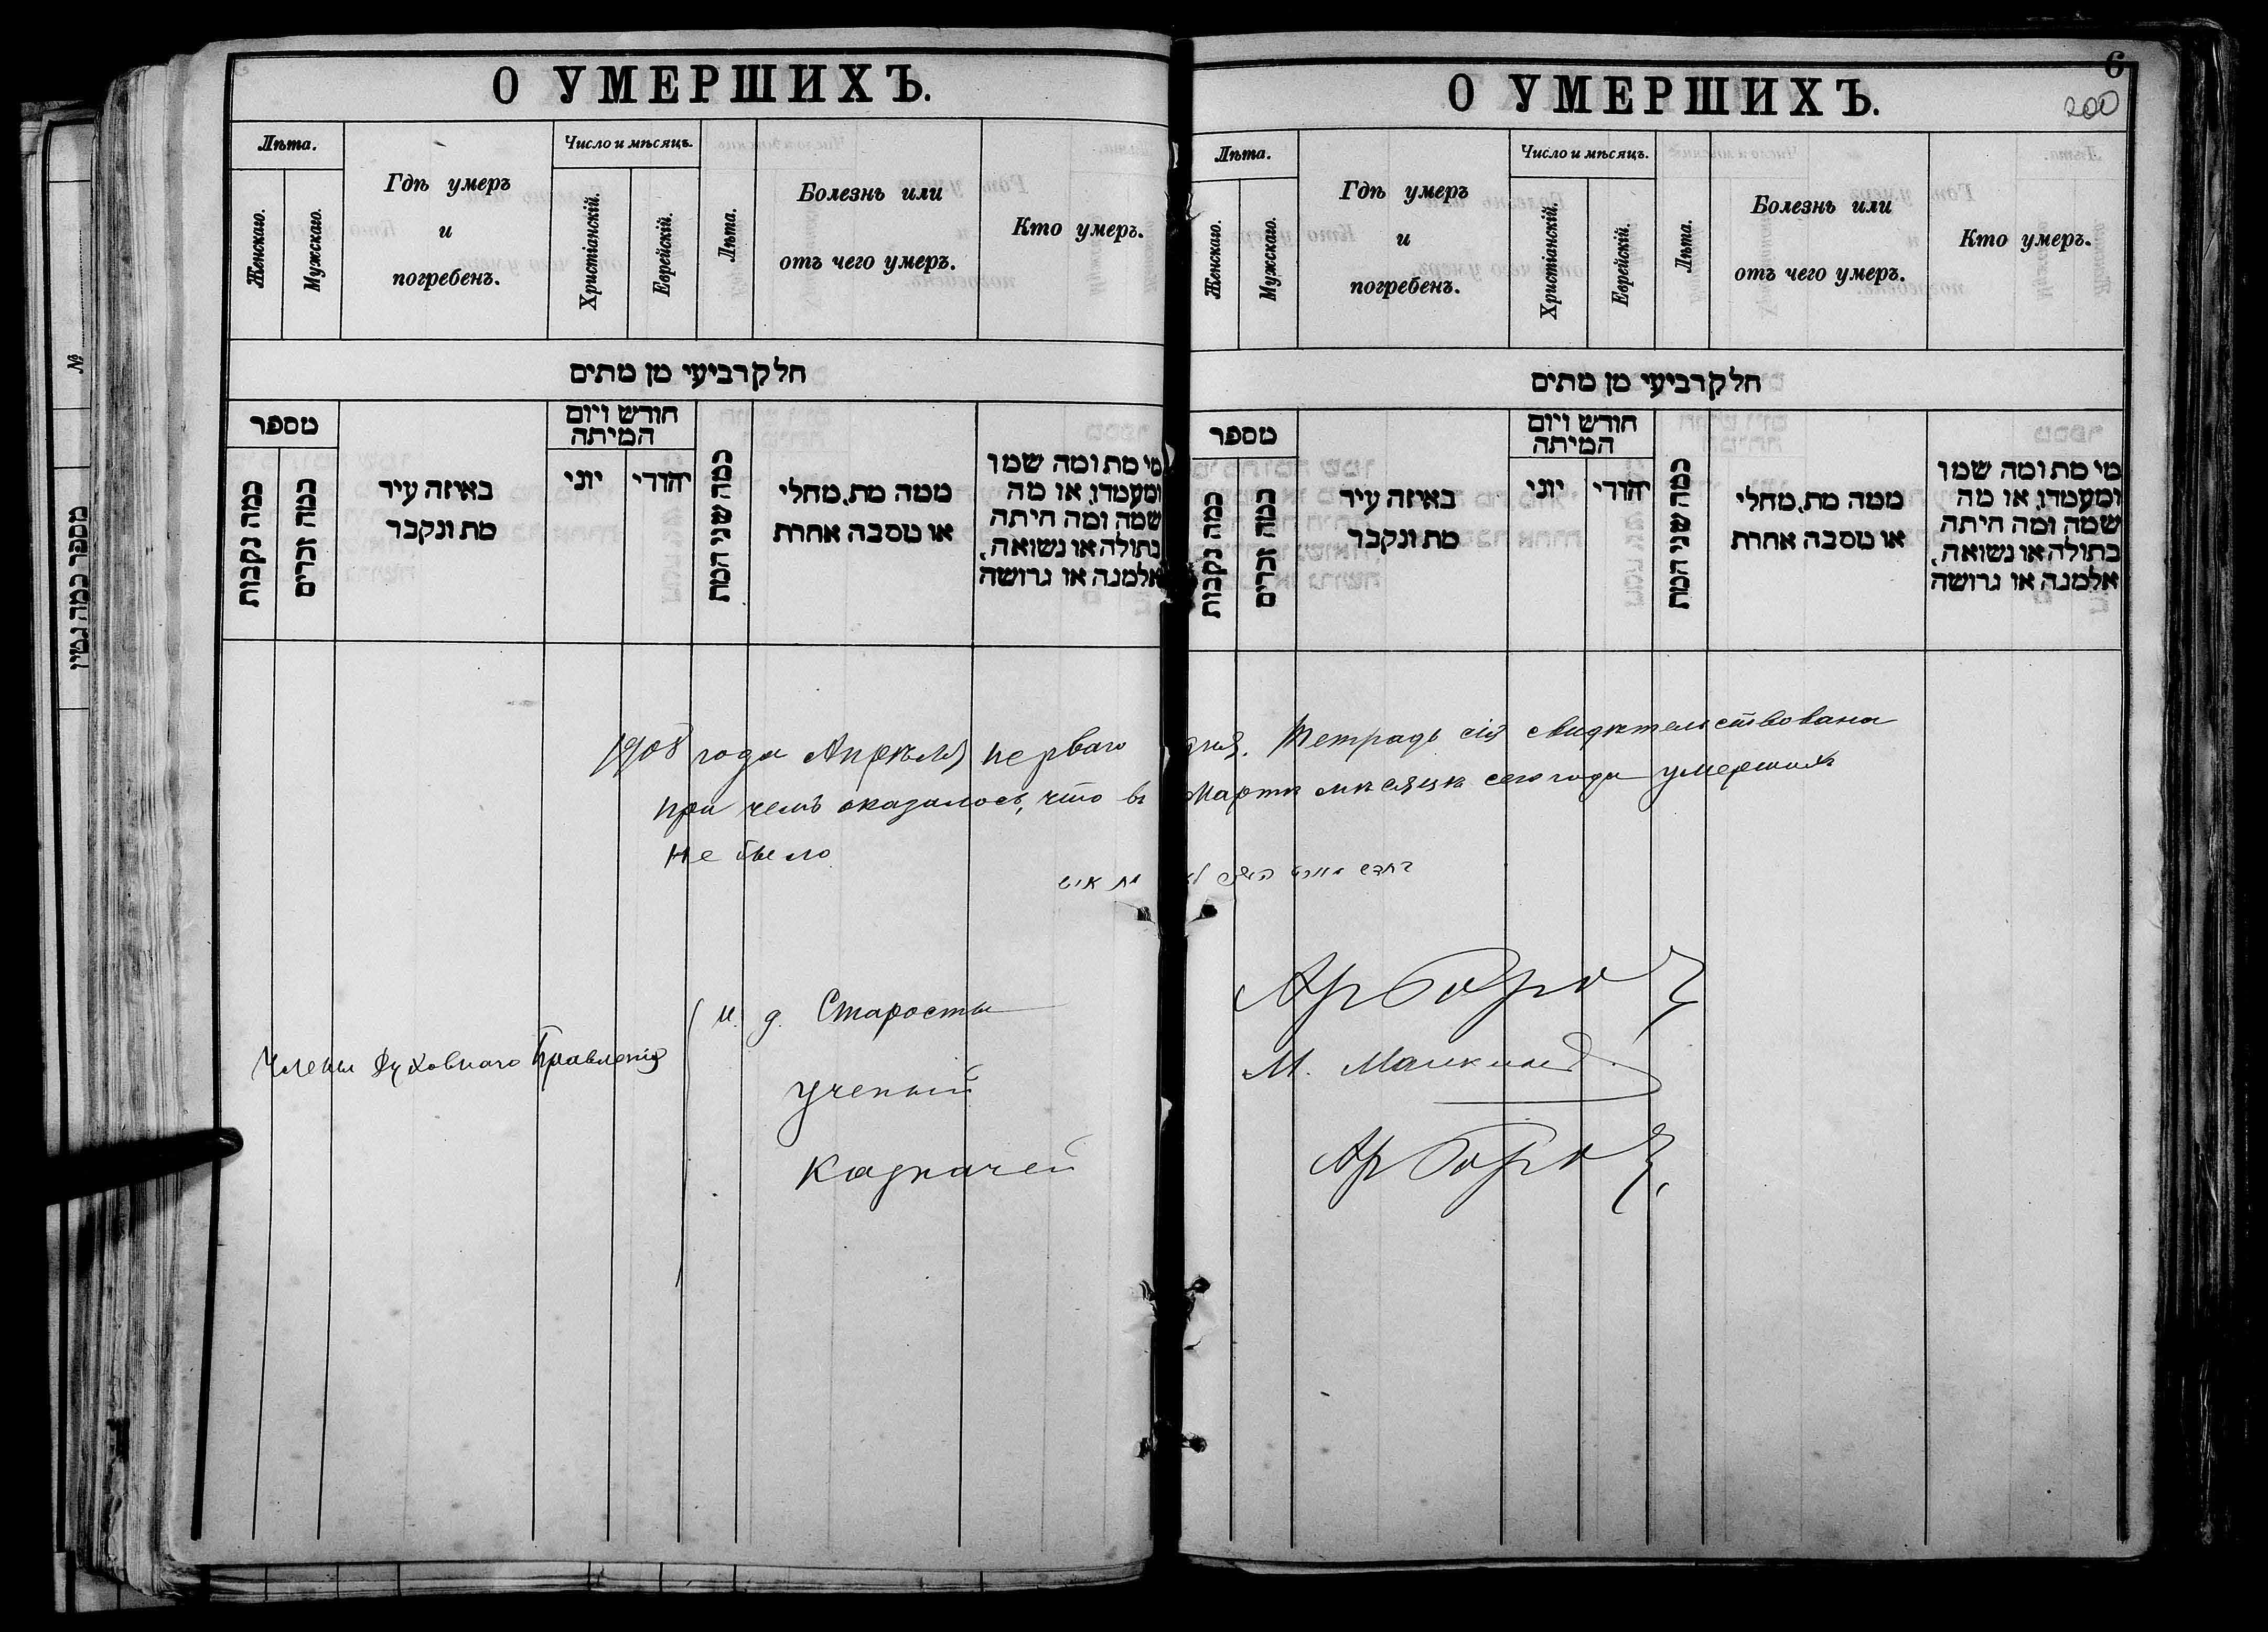 О УМЕРШИХЪ.
Лѣта.
Женскаго.
Мужскаго.
Гдѣ умеръ
и
погребенъ.
Число и мѣсяцъ.
Христіанскій.
Еврейскій.
Лѣта.
Болезнь или
отъ чего умеръ.
Кто умеръ.
חלק רביעי מן מתים
מספר
כמה נקבות
כמה זכרים
באיזה עיר
מת ונקבר
חודש ויום
המיתה
יוני
יהודי
כמה שני המת
ממה מת, מחלי
או מסבה אחרת
מי מת ומה שמו
ומעמדו, או מה
שמה ומה היתה
בתולה או נשואה,
אלמנה או גרושה
О УМЕРШИХЪ.
6
200
Лѣта.
Женскаго.
Мужскаго.
Гдѣ умеръ
и
погребенъ.
Число и мѣсяцъ.
Христіанскій.
Еврейскій.
Лѣта.
Болезнь или
отъ чего умеръ.
Кто умеръ.
חלק רביעי מן מתים
מספר
כמה נקבות
כמה זכרים
באיזה עיר
מת ונקבר
חודש ויום
המיתה
יוני
יהודי
כמה שני המת
ממה מת, מחלי
או מסבה אחרת
מי מת ומה שמו
ומעמדו, או מה
שמה ומה היתה
בתולה או נשואה,
אלמנה או גרושה
1908 года Апрѣля перваго дня. Тетрадь сія свидѣтельствована
при чемъ оказалось, что въ Мартѣ мѣсяцѣ сего года умершихъ
не было
בחדש מארט לא מת איש
Члены Духовнаго Правленія
и. д. Старосты
ученый
Казначей
№
מספר כמה גטין